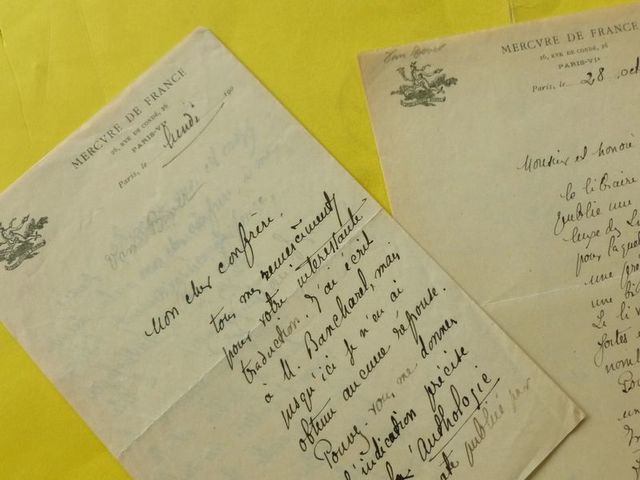 MERCVRE DE FRANCE
26, RVE DE CONDÉ, 26
PARIS-VIe
Paris, le lundi 190
Mon cher confrère,
tous mes remerciements
pour votre intéressante
traduction. J'ai écrit
à M. Bancharel, mais
jusqu'ici je n'en ai
obtenu aucune réponse.
Pouvez-vous me donner
l'indication précise
Anthologie
publiée par
MERCVRE DE FRANCE
26, RVE DE CONDÉ, 26
PARIS-VIe
Paris, le 28 oct
Monsieur et honoré
le libraire
publie une
luxe des
pour laquelle
une
une
Le li
fortes e
nomb
Pou
un